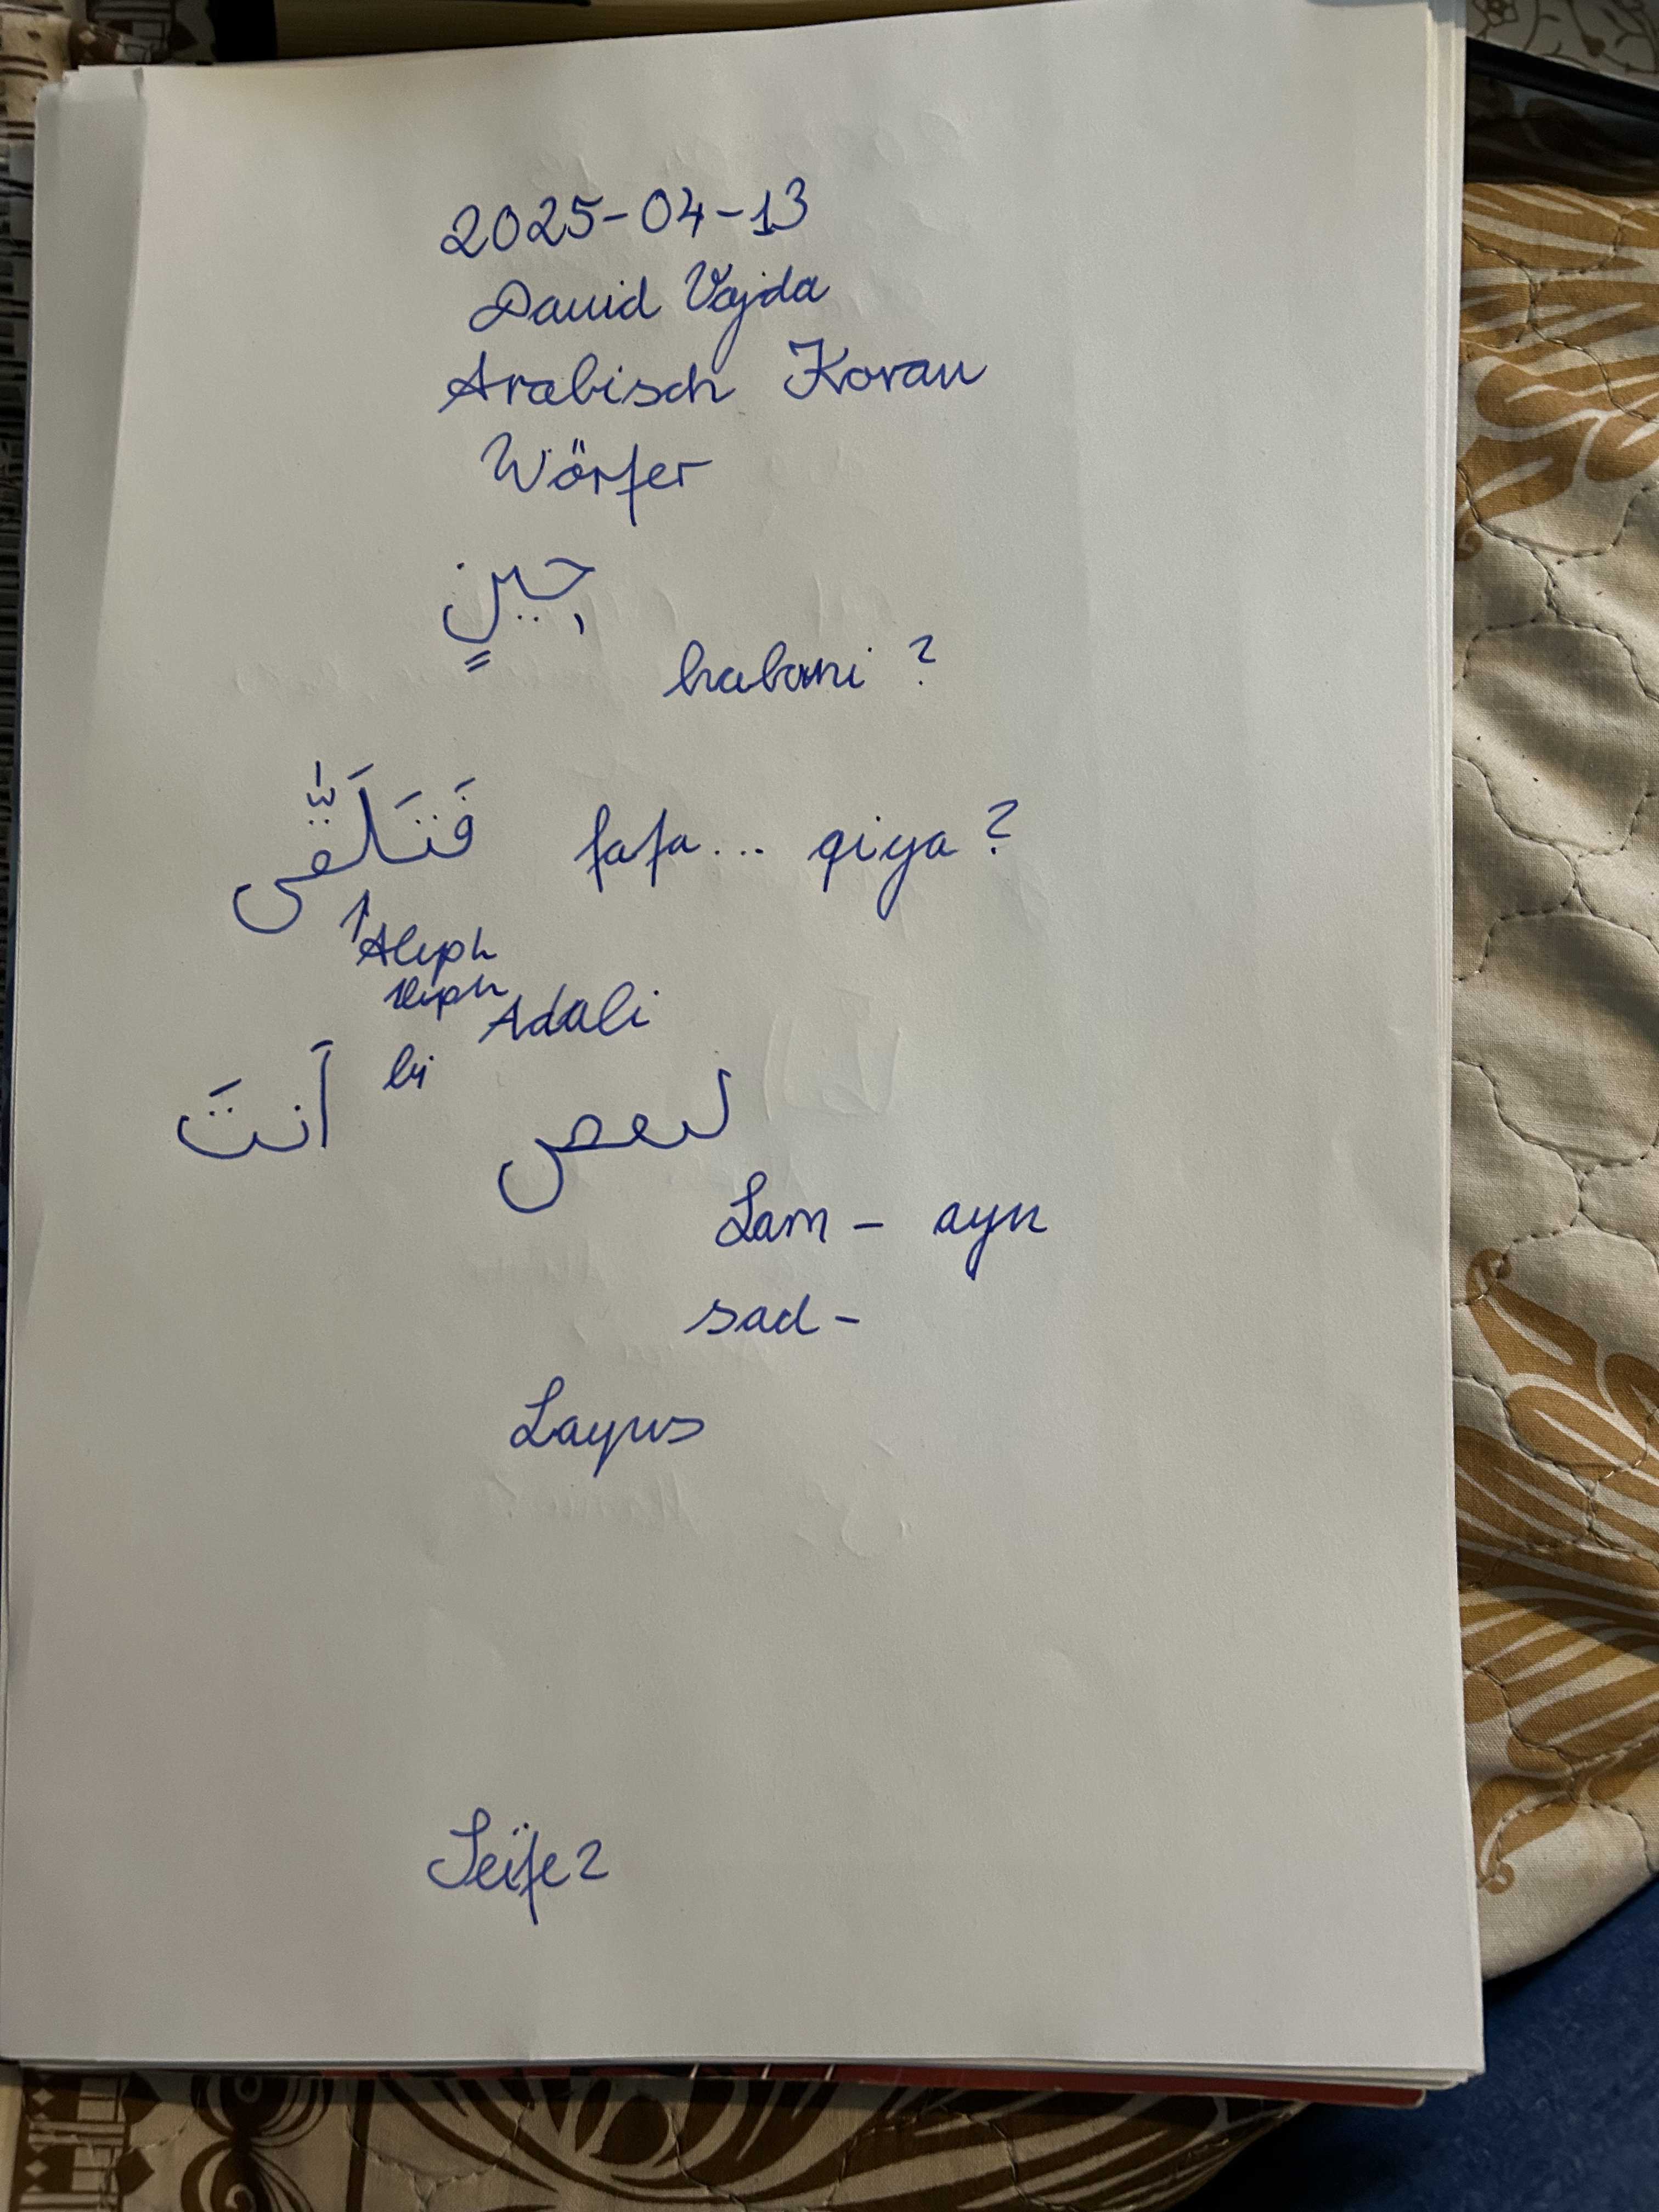 2025-04-13
David Vajda
Arabisch Koran
Wörter
حِينٍ
habani ?
فَتَلَقَّىٰ fata... qiya ?
↑Aleph
Adali
bi
أَنتَ لبعص
Lam - ayn
sad -
Layus
Seite 2